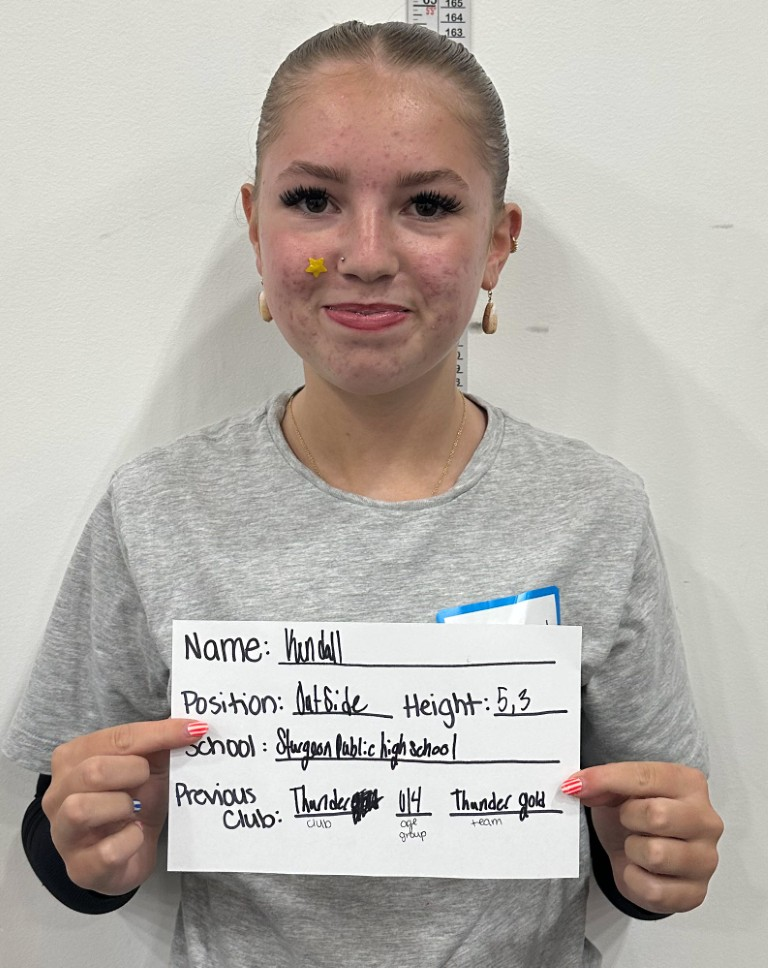 165
164
163
Name: Kendall
Position: OutSide Height: 5,3
School: Sturgeon Public high school
Previous Club: Thunder U14 Thunder gold
club age group team